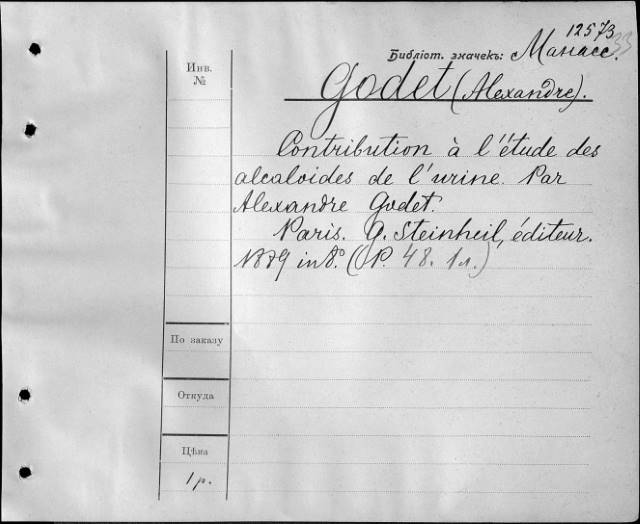 12573
33
Библіот. значекъ: Манасс.
Инв.
№
Godet (Alexandre).
Contribution à l'étude des
alcaloides de l'urine. Par
Alexandre Godet.
Paris. G. Steinheil, éditeur.
1889 in 8°. (P. 48. 1 л.)
По заказу
Откуда
Цѣна
1 р.